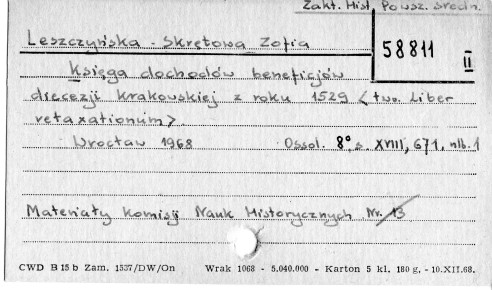 Zakł. Hist. Powsz. średn.
Leszczyńska - Skrętowa Zofia
58811
II
Księga dochodów beneficjów
diecezji krakowskiej z roku 1529 <tzw. Liber
retaxationum>
Wrocław 1968 Ossol. 8° s. XVIII, 671, nlb. 1
Materiały Komisji Nauk Historycznych Nr. 13
CWD B 15 b Zam. 1537/DW/On Wrak 1068 - 5.040.000 - Karton 5 kl. 180 g, - 10.XII.68.